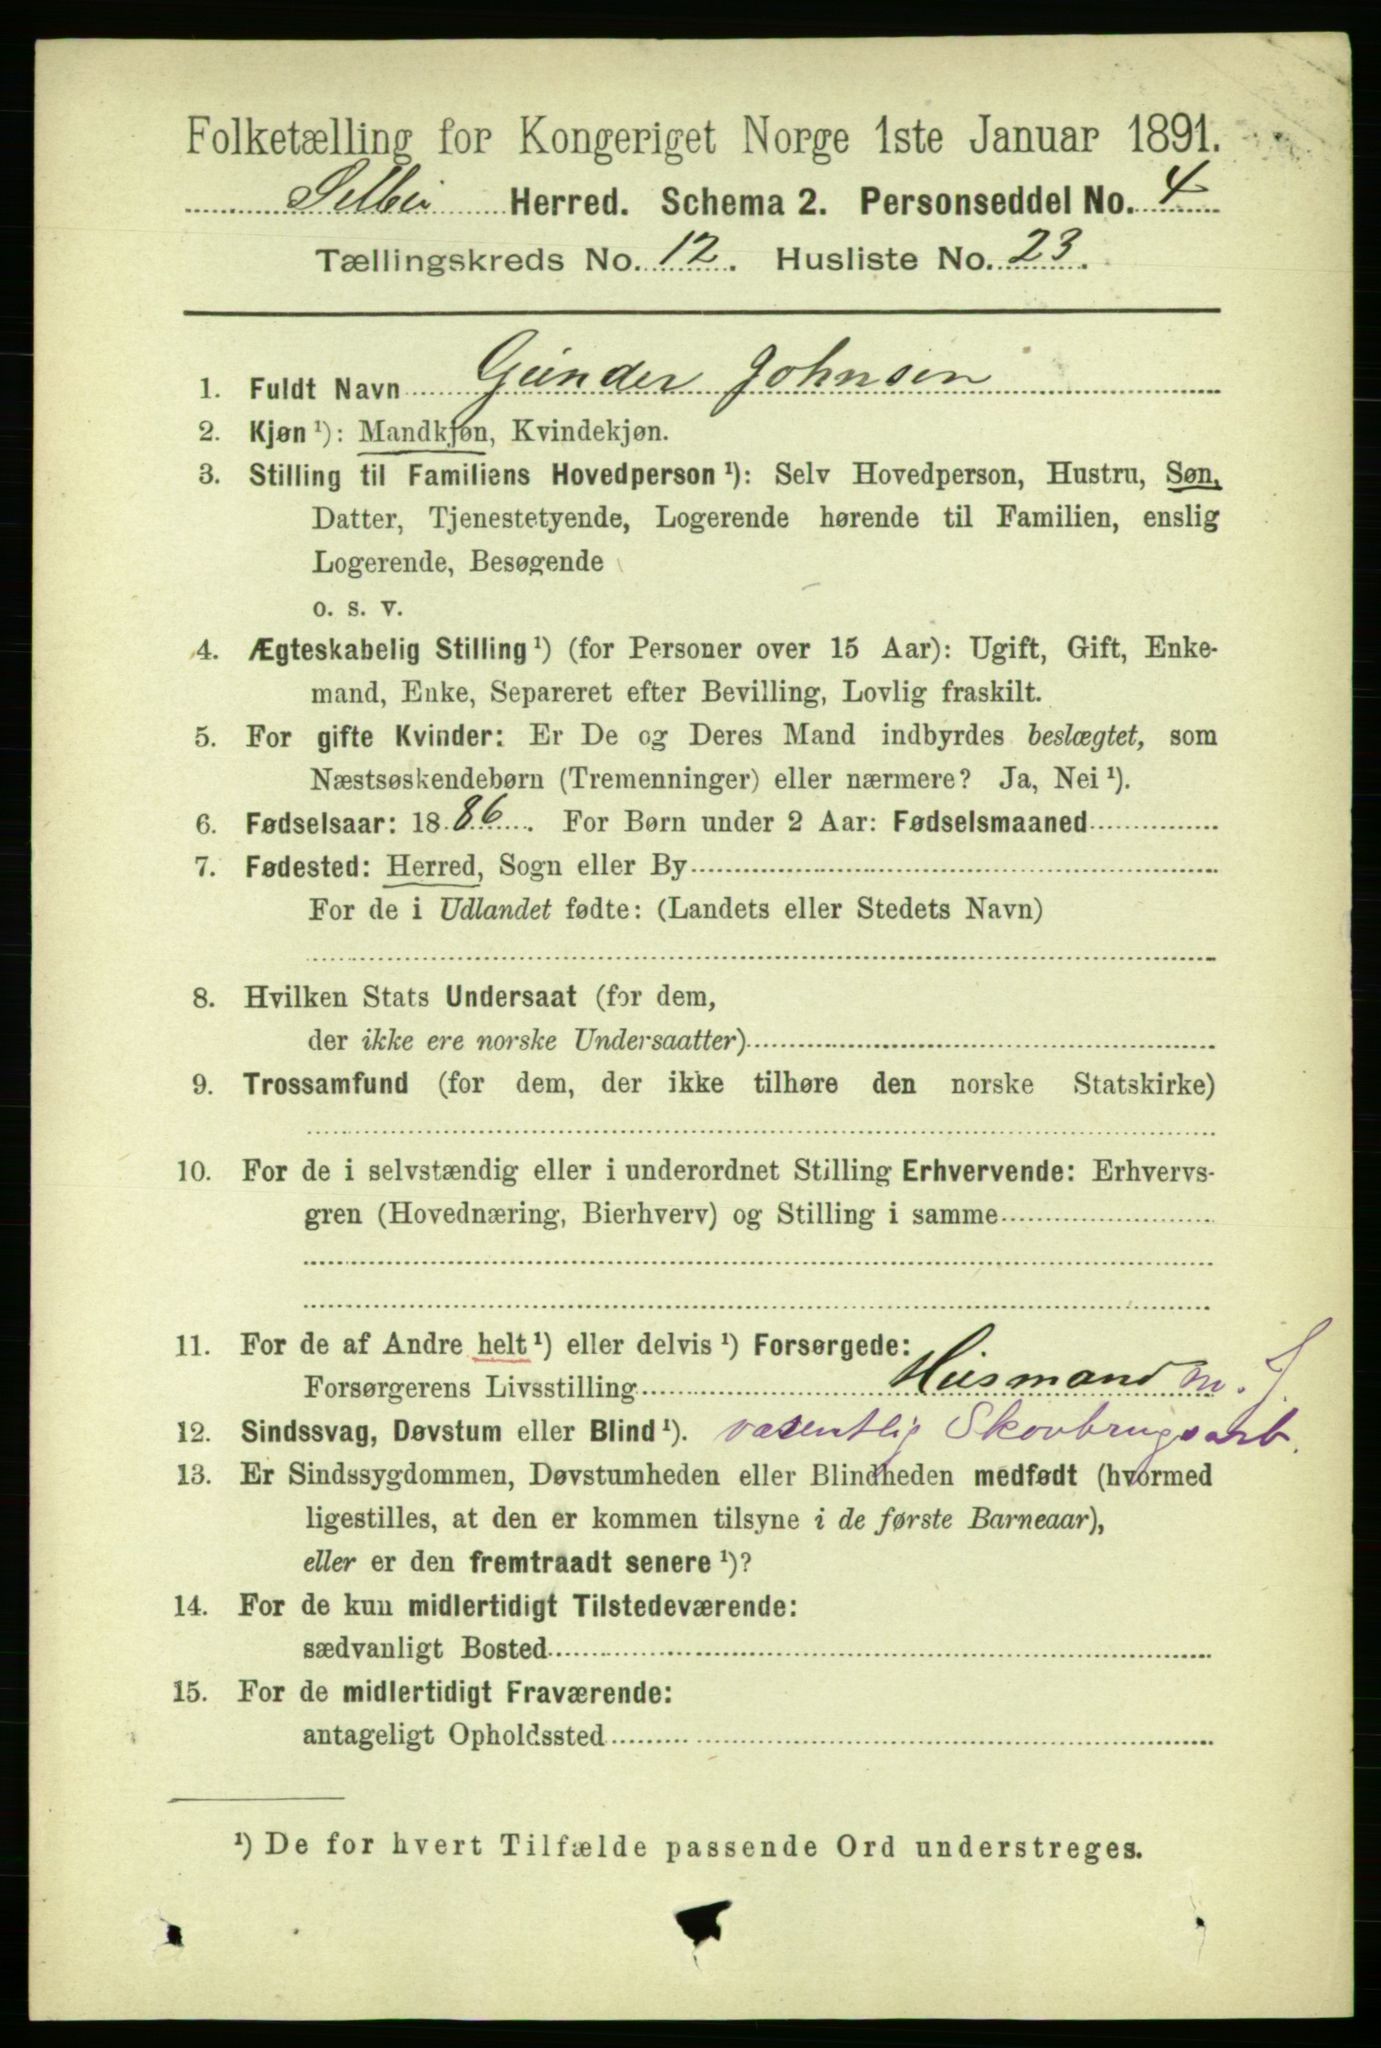 Folketælling for Kongeriget Norge 1ste Januar 1891.
Selbu Herred. Schema 2. Personseddel No. 4
Tællingskreds No. 12. Husliste No. 23.
1. Fuldt Navn Gunder Johnsen
2. Kjøn ¹): Mandkjøn, Kvindekjøn.
3. Stilling til Familiens Hovedperson ¹): Selv Hovedperson, Hustru, Søn,
Datter, Tjenestetyende, Logerende hørende til Familien, enslig
Logerende, Besøgende
o. s. v.
4. Ægteskabelig Stilling ¹) (for Personer over 15 Aar): Ugift, Gift, Enke-
mand, Enke, Separeret efter Bevilling, Lovlig fraskilt.
5. For gifte Kvinder: Er De og Deres Mand indbyrdes beslægtet, som
Næstsøskendebørn (Tremenninger) eller nærmere? Ja, Nei ¹).
6. Fødselsaar: 1886. For Børn under 2 Aar: Fødselsmaaned
7. Fødested: Herred, Sogn eller By
For de i Udlandet fødte: (Landets eller Stedets Navn)
8. Hvilken Stats Undersaat (for dem,
der ikke ere norske Undersaatter)
9. Trossamfund (for dem, der ikke tilhøre den norske Statskirke)
10. For de i selvstændig eller i underordnet Stilling Erhvervende: Erhvervs-
gren (Hovednæring, Bierhverv) og Stilling i samme
11. For de af Andre helt ¹) eller delvis ¹) Forsørgede:
Forsørgerens Livsstilling Husmand m. J.
12. Sindssvag, Døvstum eller Blind ¹). væsentlig Skovbrugsarb.
13. Er Sindssygdommen, Døvstumheden eller Blindheden medfødt (hvormed
ligestilles, at den er kommen tilsyne i de første Barneaar),
eller er den fremtraadt senere ¹)?
14. For de kun midlertidigt Tilstedeværende:
sædvanligt Bosted
15. For de midlertidigt Fraværende:
antageligt Opholdssted
¹) De for hvert Tilfælde passende Ord understreges.